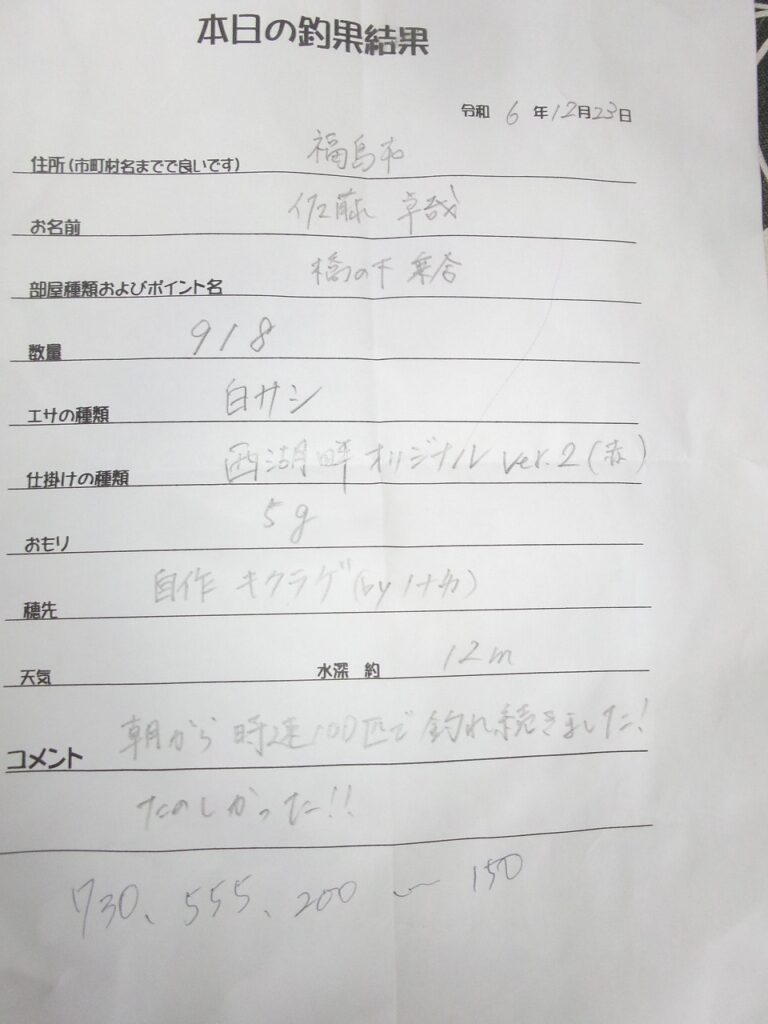 本日の釣果結果
令和 6 年12月23日
住所(市町材名までで良いです) 福島市
お名前 佐藤 卓哉
部屋種類およびポイント名 橋の下 乗合
数量 918
エサの種類 白サシ
仕掛けの種類 西湖畔オリジナル ver.2(赤)
おもり 5g
穂先 自作 キクラゲ(by ハナカ)
天気 水深 約 12m
コメント 朝から時速100匹で釣れ続きました!
たのしかった!!
730、555、200 〜 150